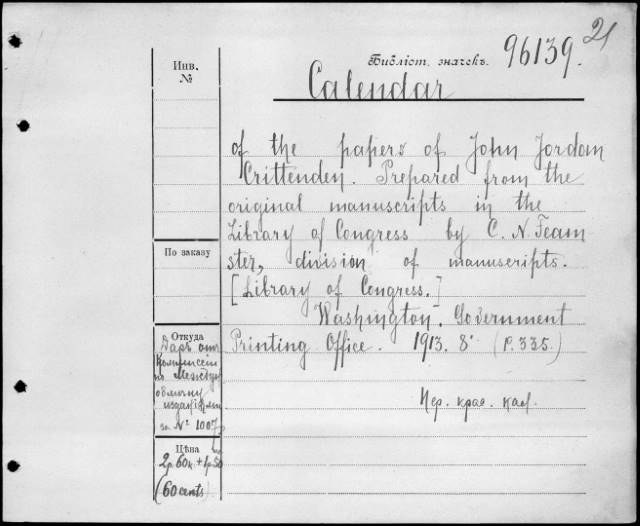 21
Библіот. значекъ. 96139.
Инв.
№
Calendar
of the papers of John Jordan
Crittenden. Prepared from the
original manuscripts in the
Library of Congress by C. N. Feam
ster, division of manuscripts.
[Library of Congress.]
Washington. Government
Printing Office. 1913. 8° (P. 335.)
По заказу
Откуда
Даръ отъ
Комиссіи
по Между
обмѣну
изданіями
за № 1007
Цѣна
2р. 60к. + 1р. 50
(60 cents)
Пер. кра. каб.